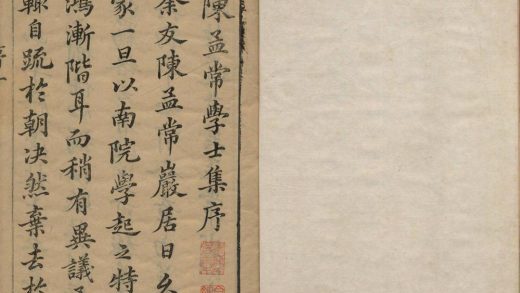 陳孟常學士集序
余友陳孟常巖居日久
家一旦以南院學起之特
鴻漸階耳而稍有異議
輒自疏於朝決然棄去於